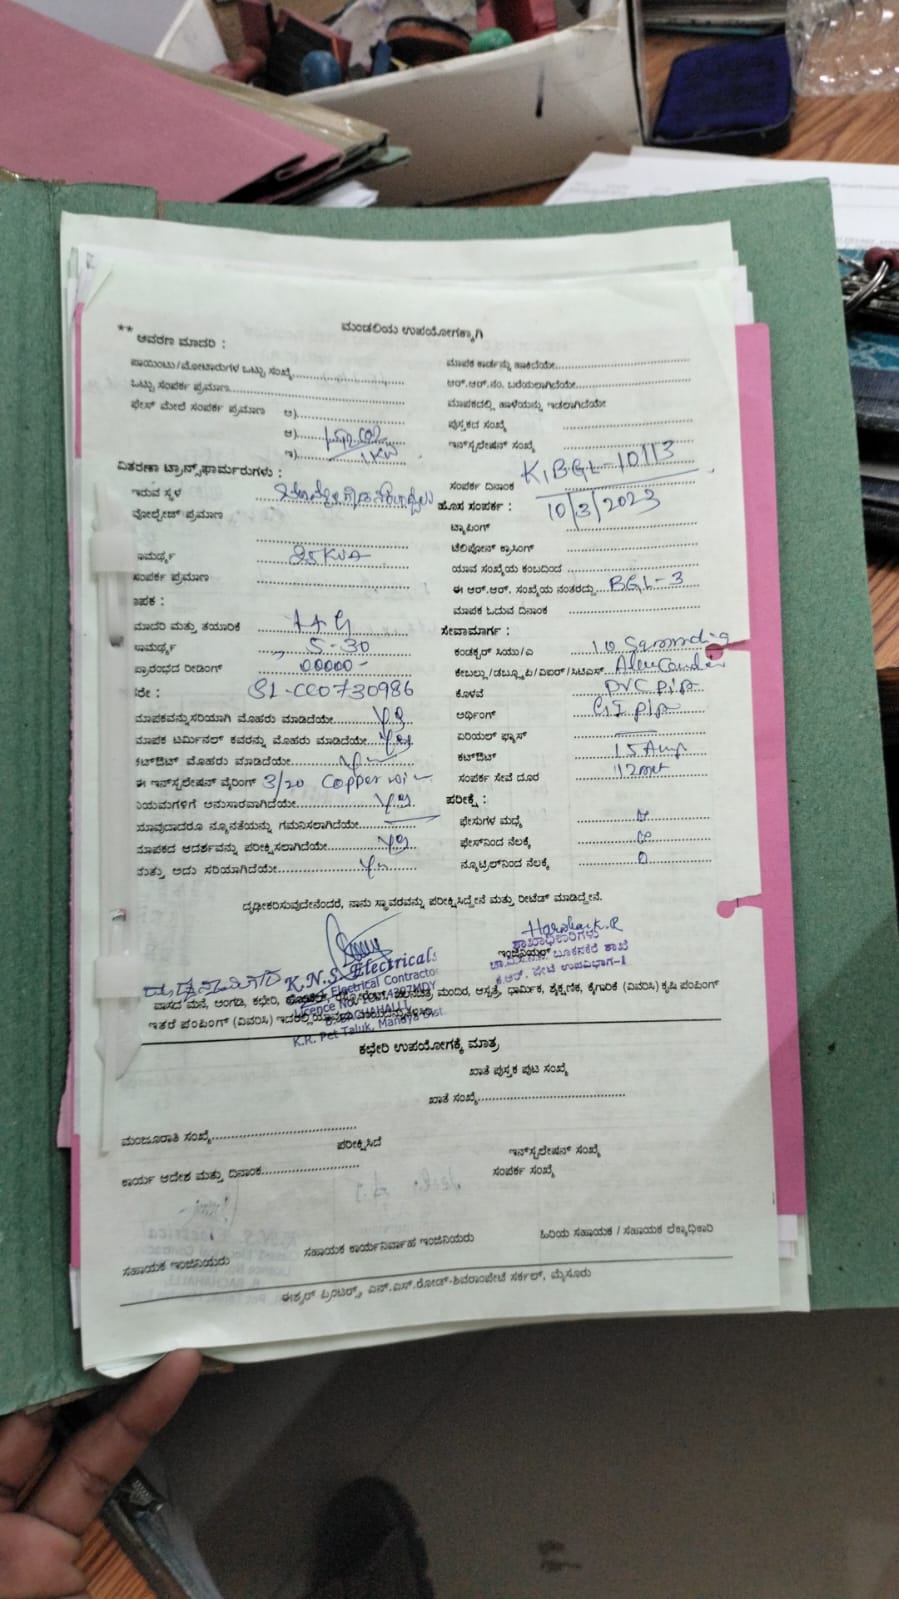 ಮಂಡಲಿಯ ಉಪಯೋಗಕ್ಕಾಗಿ
** ಆವರಣ ಮಾದರಿ :
ಪಾಯಿಂಟು/ಮೋಟಾರುಗಳ ಒಟ್ಟು ಸಂಖ್ಯೆ
ಒಟ್ಟು ಸಂಪರ್ಕ ಪ್ರಮಾಣ
ಫೇಸ್ ಮೇಲೆ ಸಂಪರ್ಕ ಪ್ರಮಾಣ ಅ)
ಆ)
ಇ) 1KW
ವಿತರಣಾ ಟ್ರಾನ್ಸ್‌ಫಾರ್ಮರುಗಳು :
ಇರುವ ಸ್ಥಳ
ವೋಲ್ಟೇಜ್ ಪ್ರಮಾಣ
ಾಮರ್ಥ್ಯ 25 KVA
ಸಂಪರ್ಕ ಪ್ರಮಾಣ
ಾಪಕ :
ಮಾದರಿ ಮತ್ತು ತಯಾರಿಕೆ L+G
ಾಮರ್ಥ್ಯ 5-30
ಪ್ರಾರಂಭದ ರೀಡಿಂಗ್ 00000-
ಸರೇ : SL-CC0730986
ಮಾಪಕವನ್ನು ಸರಿಯಾಗಿ ಮೊಹರು ಮಾಡಿದೆಯೇ yes
ಮಾಪಕ ಟರ್ಮಿನಲ್ ಕವರನ್ನು ಮೊಹರು ಮಾಡಿದೆಯೇ yes
ಕಟ್‌ಔಟ್ ಮೊಹರು ಮಾಡಿದೆಯೇ yes
ಈ ಇನ್‌ಸ್ಟಲೇಷನ್ ವೈರಿಂಗ್ 3/20 Copper wire
ನಿಯಮಗಳಿಗೆ ಅನುಸಾರವಾಗಿದೆಯೇ yes
ಯಾವುದಾದರೂ ನ್ಯೂನತೆಯನ್ನು ಗಮನಿಸಲಾಗಿದೆಯೇ
ಮಾಪಕದ ಆದರ್ಶವನ್ನು ಪರೀಕ್ಷಿಸಲಾಗಿದೆಯೇ yes
ಮತ್ತು ಅದು ಸರಿಯಾಗಿದೆಯೇ yes
ಮಾಪಕ ಕಾರ್ಡನ್ನು ಹಾಕಿದೆಯೇ
ಆರ್.ಆರ್.ನಂ. ಬರೆಯಲಾಗಿದೆಯೇ
ಮಾಪಕದಲ್ಲಿ ಹಾಳೆಯನ್ನು ಇಡಲಾಗಿದೆಯೇ
ಪುಸ್ತಕದ ಸಂಖ್ಯೆ
ಇನ್‌ಸ್ಟಲೇಷನ್ ಸಂಖ್ಯೆ
ಸಂಪರ್ಕ ದಿನಾಂಕ K1BGL-10113
ಹೊಸ ಸಂಪರ್ಕ : 10/3/2023
ಟ್ಯಾಪಿಂಗ್
ಟೆಲಿಫೋನ್ ಕ್ರಾಸಿಂಗ್
ಯಾವ ಸಂಖ್ಯೆಯ ಕಂಬದಿಂದ
ಈ ಆರ್.ಆರ್. ಸಂಖ್ಯೆಯ ನಂತರದ್ದು BGL-3
ಮಾಪಕ ಓದುವ ದಿನಾಂಕ
ಸೇವಾಮಾರ್ಗ :
ಕಂಡಕ್ಟರ್ ಸಿಯು/ಎ
ಕೇಬಲ್ಲು/ಡಬ್ಲ್ಯೂಪಿ/ವಿಐಆರ್/ಸಿಟಿಎಸ್
ಕೊಳವೆ PVC pipe
ಅರ್ಥಿಂಗ್ G.I pipe
ಏರಿಯಲ್ ಫ್ಯೂಸ್
ಕಟ್‌ಔಟ್ 15 Amp
ಸಂಪರ್ಕ ಸೇವೆ ದೂರ 12 mt
ಪರೀಕ್ಷೆ :
ಫೇಸುಗಳ ಮಧ್ಯೆ
ಫೇಸ್‌ನಿಂದ ನೆಲಕ್ಕೆ
ನ್ಯೂಟ್ರಿಲ್‌ನಿಂದ ನೆಲಕ್ಕೆ 0
ದೃಢೀಕರಿಸುವುದೇನೆಂದರೆ, ನಾನು ಸ್ಥಾವರವನ್ನು ಪರೀಕ್ಷಿಸಿದ್ದೇನೆ ಮತ್ತು ರೀಟೆಡ್ ಮಾಡಿದ್ದೇನೆ.
K.N.S. Electricals
Electrical Contractor
K.R. Pet Taluk, Mandya Dist.
ಇಂಜಿನಿಯರ್
ಶಾಖಾಧಿಕಾರಿಗಳು
ಚಾ.ವಿ.ಸ.ನಿ.ನಿ. ಬೂಕನಕೆರೆ ಶಾಖೆ
ಕೆ.ಆರ್. ಪೇಟೆ ಉಪವಿಭಾಗ-1
ವಾಸದ ಮನೆ, ಅಂಗಡಿ, ಕಛೇರಿ, ಮಂದಿರ, ಆಸ್ಪತ್ರೆ, ಧಾರ್ಮಿಕ, ಶೈಕ್ಷಣಿಕ, ಕೈಗಾರಿಕೆ (ವಿವರಿಸಿ) ಕೃಷಿ ಪಂಪಿಂಗ್
ಇತರೆ ಪಂಪಿಂಗ್ (ವಿವರಿಸಿ)
ಕಛೇರಿ ಉಪಯೋಗಕ್ಕೆ ಮಾತ್ರ
ಖಾತೆ ಪುಸ್ತಕ ಪುಟ ಸಂಖ್ಯೆ
ಖಾತೆ ಸಂಖ್ಯೆ
ಮಂಜೂರಾತಿ ಸಂಖ್ಯೆ
ಪರೀಕ್ಷಿಸಿದೆ
ಇನ್‌ಸ್ಟಲೇಷನ್ ಸಂಖ್ಯೆ
ಕಾರ್ಯ ಆದೇಶ ಮತ್ತು ದಿನಾಂಕ
ಸಂಪರ್ಕ ಸಂಖ್ಯೆ
ಸಹಾಯಕ ಇಂಜಿನಿಯರು
ಸಹಾಯಕ ಕಾರ್ಯನಿರ್ವಾಹ ಇಂಜಿನಿಯರು
ಹಿರಿಯ ಸಹಾಯಕ / ಸಹಾಯಕ ಲೆಕ್ಕಾಧಿಕಾರಿ
ಈಶ್ವರ್ ಪ್ರಿಂಟರ್ಸ್, ಎನ್.ಎಸ್.ರೋಡ್-ಶಿವರಾಂಪೇಟೆ ಸರ್ಕಲ್, ಮೈಸೂರು